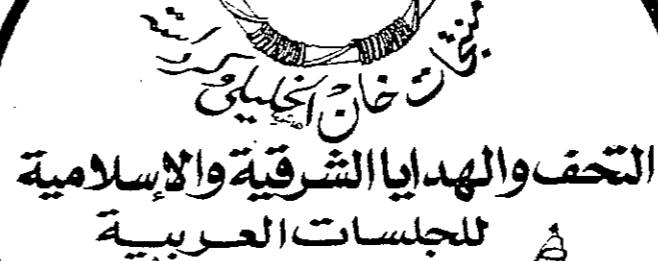 منتجات خان الخليلي وكرداسة
التحف والهدايا الشرقية والإسلامية
للجلسات العربية